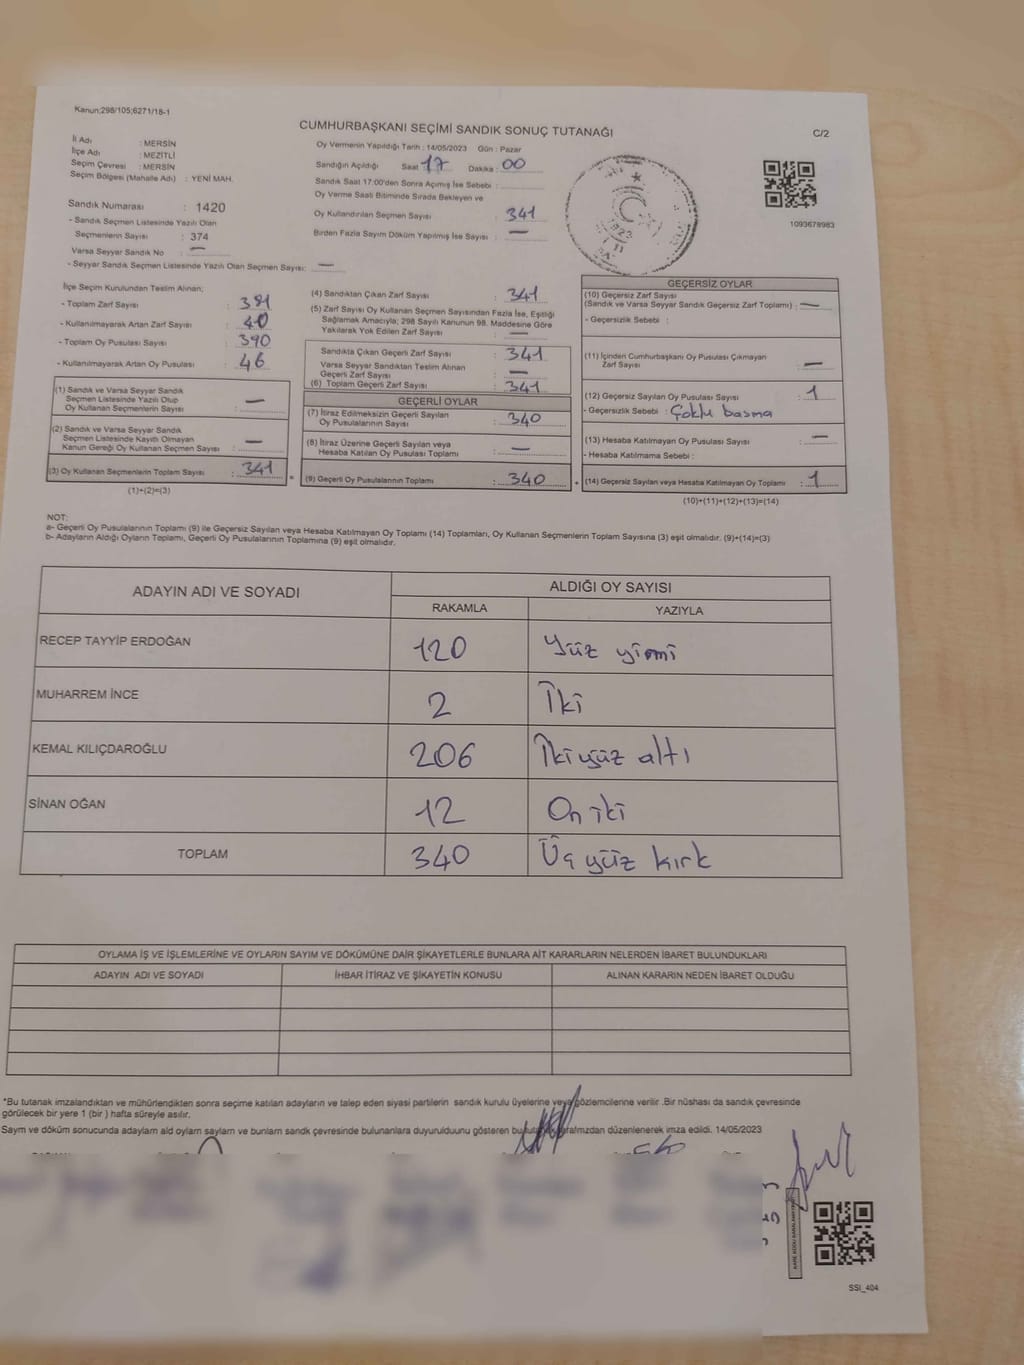 Kanun;298/105;6271/18-1
CUMHURBAŞKANI SEÇİMİ SANDIK SONUÇ TUTANAĞI
C/2
İl Adı : MERSİN
İlçe Adı : MEZİTLİ
Seçim Çevresi : MERSİN
Seçim Bölgesi (Mahalle Adı) : YENİ MAH.
Sandık Numarası : 1420
- Sandık Seçmen Listesinde Yazılı Olan
Seçmenlerin Sayısı : 374
Varsa Seyyar Sandık No : —
- Seyyar Sandık Seçmen Listesinde Yazılı Olan Seçmen Sayısı: —
Oy Vermenin Yapıldığı Tarih : 14/05/2023 Gün : Pazar
Sandığın Açıldığı Saat 17 Dakika : 00
Sandık Saat 17:00'den Sonra Açılmış İse Sebebi :
Oy Verme Saati Bitiminde Sırada Bekleyen ve
Oy Kullandırılan Seçmen Sayısı : 341
Birden Fazla Sayım Döküm Yapılmış İse Sayısı : —
1923
1093678983
İlçe Seçim Kurulundan Teslim Alınan;
- Toplam Zarf Sayısı : 381
- Kullanılmayarak Artan Zarf Sayısı : 40
- Toplam Oy Pusulası Sayısı : 390
- Kullanılmayarak Artan Oy Pusulası : 46
(1) Sandık ve Varsa Seyyar Sandık
Seçmen Listesinde Yazılı Olup
Oy Kullanan Seçmenlerin Sayısı : —
(2) Sandık ve Varsa Seyyar Sandık
Seçmen Listesinde Kayıtlı Olmayan
Kanun Gereği Oy Kullanan Seçmen Sayısı : —
(3) Oy Kullanan Seçmenlerin Toplam Sayısı : 341
(1)+(2)=(3)
(4) Sandıktan Çıkan Zarf Sayısı : 341
(5) Zarf Sayısı Oy Kullanan Seçmen Sayısından Fazla İse, Eşitliği
Sağlamak Amacıyla; 298 Sayılı Kanunun 98. Maddesine Göre
Yakılarak Yok Edilen Zarf Sayısı : —
Sandıkta Çıkan Geçerli Zarf Sayısı : 341
Varsa Seyyar Sandıktan Teslim Alınan
Geçerli Zarf Sayısı : —
(6) Toplam Geçerli Zarf Sayısı : 341
GEÇERLİ OYLAR
(7) İtiraz Edilmeksizin Geçerli Sayılan
Oy Pusulalarının Sayısı : 340
(8) İtiraz Üzerine Geçerli Sayılan veya
Hesaba Katılan Oy Pusulası Toplamı : —
(9) Geçerli Oy Pusulalarının Toplamı : 340
GEÇERSİZ OYLAR
(10) Geçersiz Zarf Sayısı
(Sandık ve Varsa Seyyar Sandık Geçersiz Zarf Toplamı) : —
- Geçersizlik Sebebi :
(11) İçinden Cumhurbaşkanı Oy Pusulası Çıkmayan
Zarf Sayısı : —
(12) Geçersiz Sayılan Oy Pusulası Sayısı : 1
- Geçersizlik Sebebi : Çoklu basma
(13) Hesaba Katılmayan Oy Pusulası Sayısı : —
- Hesaba Katılmama Sebebi :
(14) Geçersiz Sayılan veya Hesaba Katılmayan Oy Toplamı : 1
(10)+(11)+(12)+(13)=(14)
NOT:
a- Geçerli Oy Pusulalarının Toplamı (9) ile Geçersiz Sayılan veya Hesaba Katılmayan Oy Toplamı (14) Toplamları, Oy Kullanan Seçmenlerin Toplam Sayısına (3) eşit olmalıdır. (9)+(14)=(3)
b- Adayların Aldığı Oyların Toplamı, Geçerli Oy Pusulalarının Toplamına (9) eşit olmalıdır.
ADAYIN ADI VE SOYADI
ALDIĞI OY SAYISI
RAKAMLA YAZIYLA
RECEP TAYYİP ERDOĞAN 120 Yüz yirmi
MUHARREM İNCE 2 İki
KEMAL KILIÇDAROĞLU 206 İkiyüz altı
SİNAN OĞAN 12 On iki
TOPLAM 340 Üç yüz kırk
OYLAMA İŞ VE İŞLEMLERİNE VE OYLARIN SAYIM VE DÖKÜMÜNE DAİR ŞİKAYETLERLE BUNLARA AİT KARARLARIN NELERDEN İBARET BULUNDUKLARI
ADAYIN ADI VE SOYADI İHBAR İTİRAZ VE ŞİKAYETİN KONUSU ALINAN KARARIN NEDEN İBARET OLDUĞU
*Bu tutanak imzalandıktan ve mühürlendikten sonra seçime katılan adayların ve talep eden siyasi partilerin sandık kurulu üyelerine veya gözlemcilerine verilir .Bir nüshası da sandık çevresinde
görülecek bir yere 1 (bir ) hafta süreyle asılır.
Sayım ve döküm sonucunda adayların aldığı oyların sayıları ve bunların sandık çevresinde bulunanlara duyurulduğunu gösteren bu tutanak düzenlenerek imza edildi. 14/05/2023
SSI_404